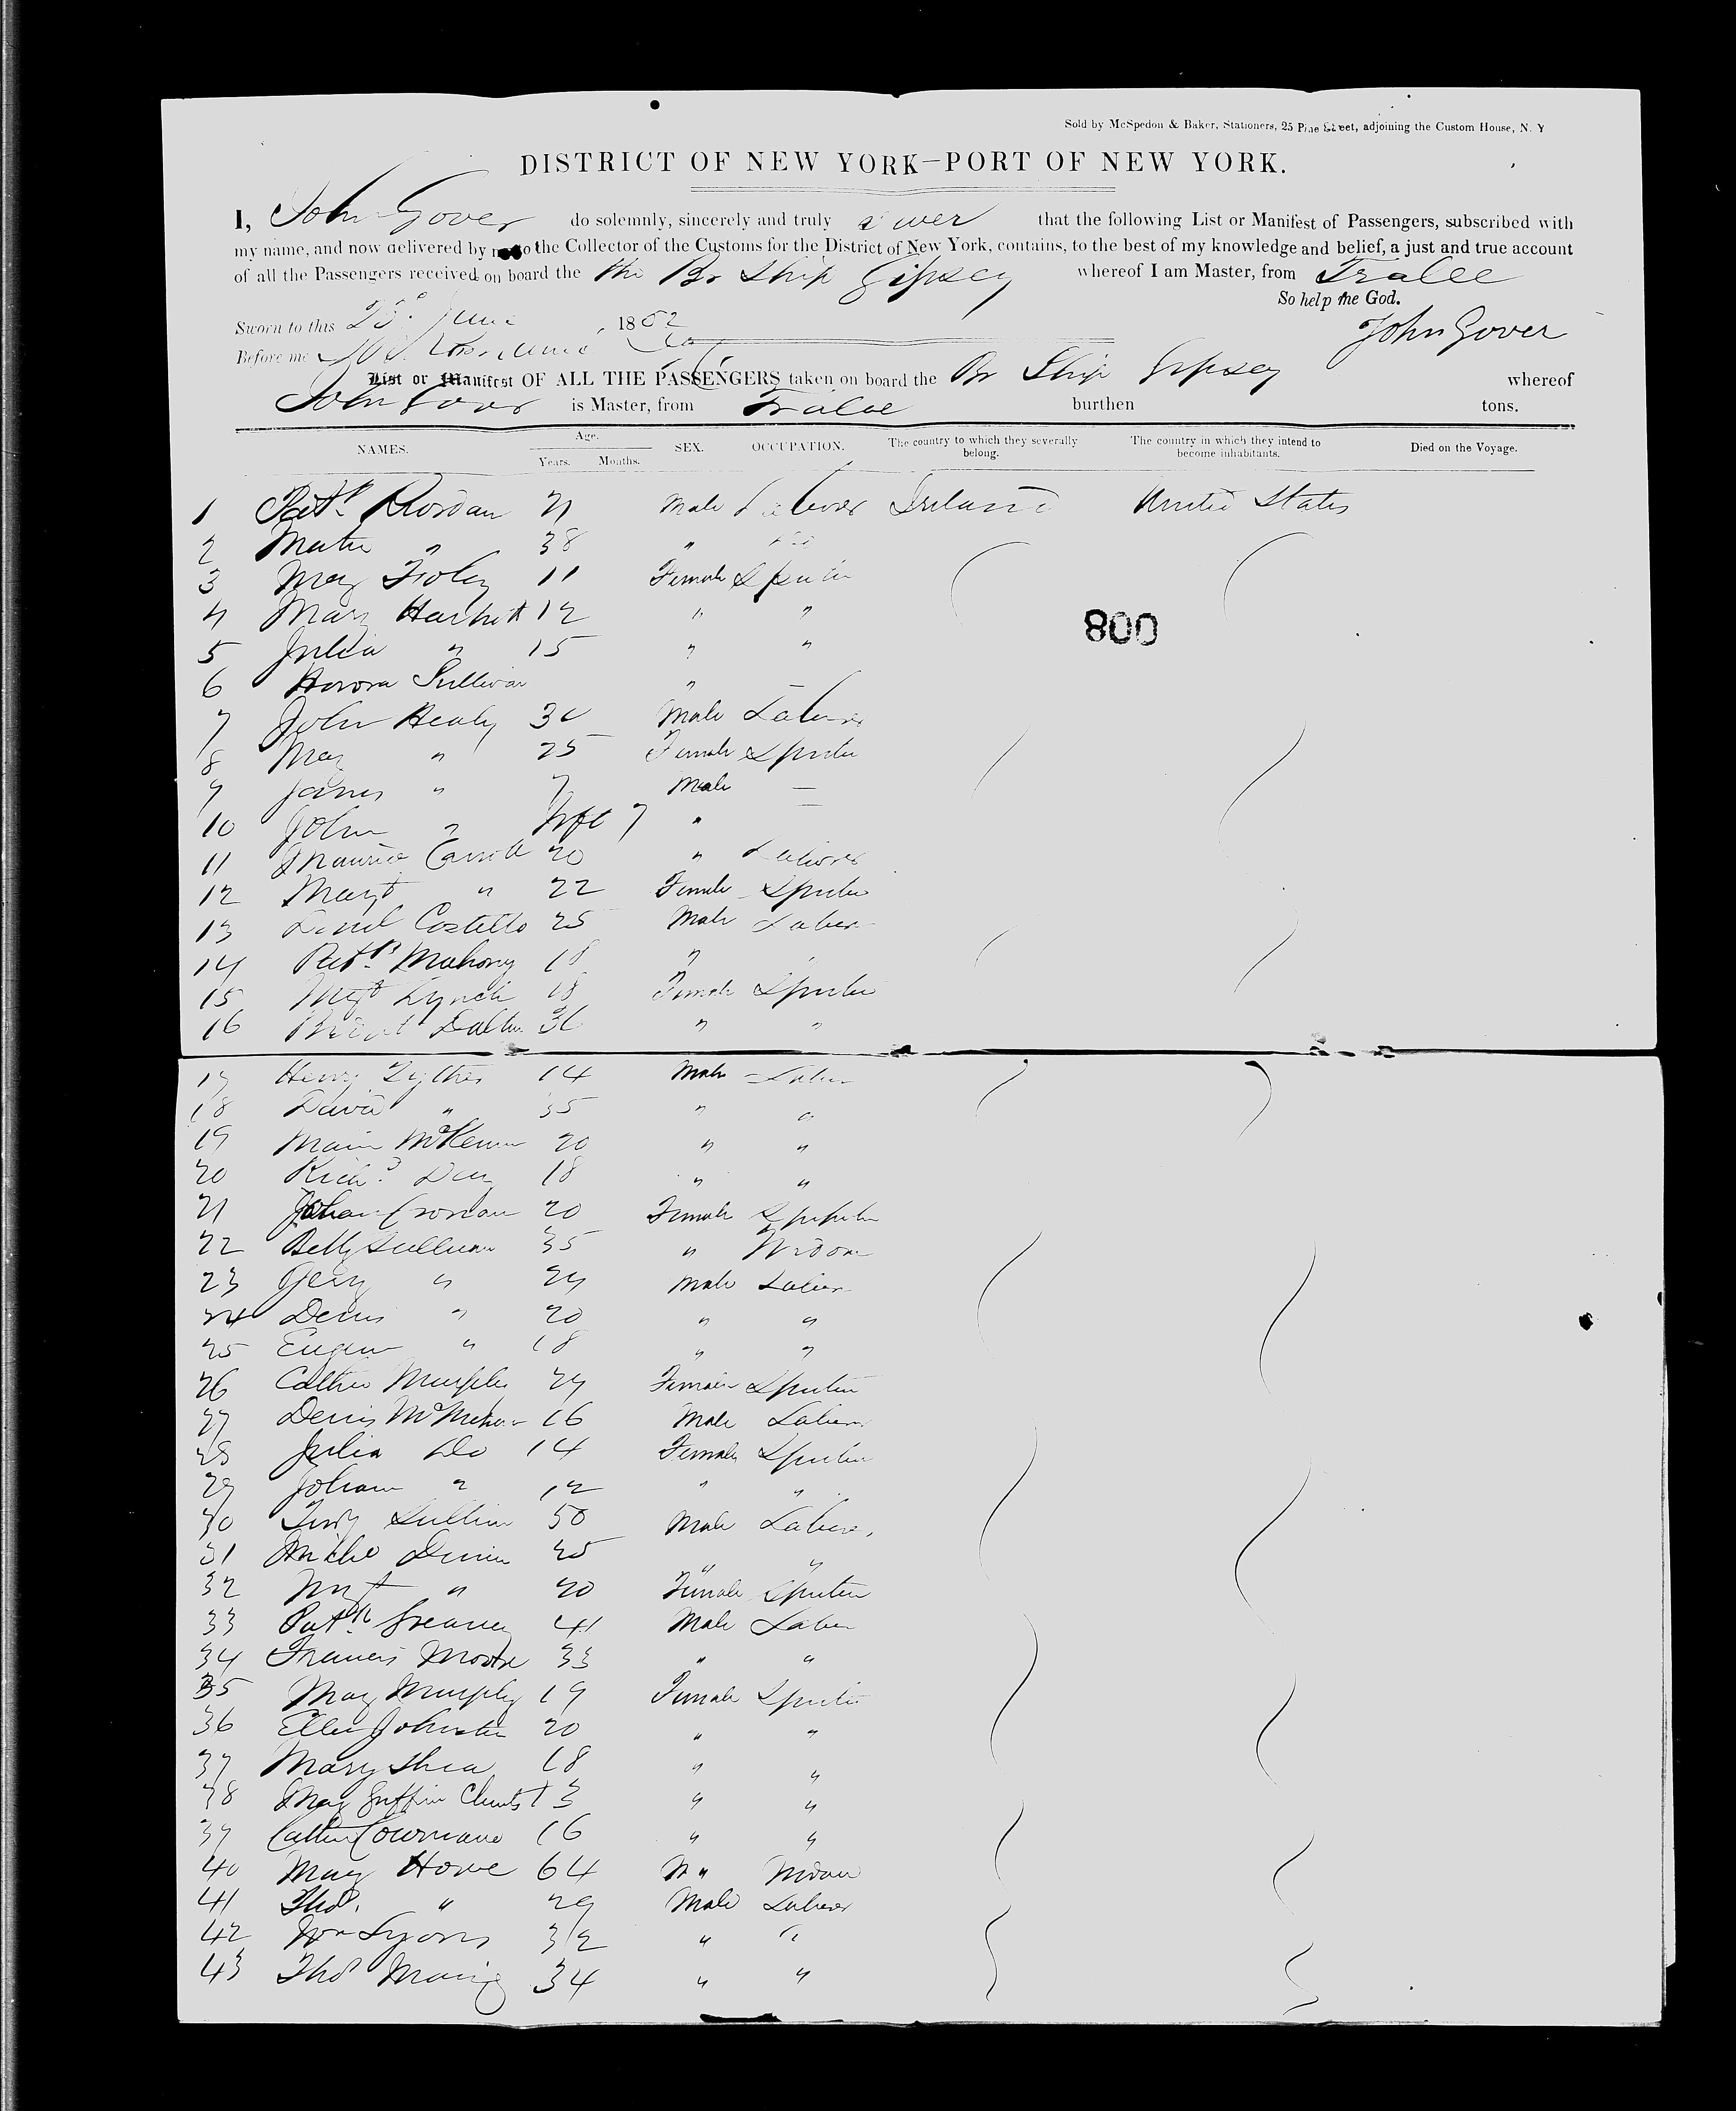 Sold by McSpedon & Baker, Stationers, 25 Pine Street, adjoining the Custom House, N. Y
DISTRICT OF NEW YORK—PORT OF NEW YORK.
I, John Gover do solemnly, sincerely and truly swer that the following List or Manifest of Passengers, subscribed with
my name, and now delivered by me to the Collector of the Customs for the District of New York, contains, to the best of my knowledge and belief, a just and true account
of all the Passengers received on board the the Br Ship Gipsey whereof I am Master, from Tralee
So help me God.
Sworn to this 25 June 1852
John Gover
Before me
List or Manifest OF ALL THE PASSENGERS taken on board the Br Ship Gipsey whereof
John Gover is Master, from Tralee burthen tons.
NAMES. Age. Years. Months. SEX. OCCUPATION. The country to which they severally belong. The country in which they intend to become inhabitants. Died on the Voyage.
1 Patk Riordan 21 Male Laborer Ireland United States
2 " 38 "
3 May Foley 11 Female Spinster
4 Mary Harnett 12 " "
800
5 Julia " 15 " "
6 Honora Sullivan " —
7 John Healy 30 Male Laborer
8 May " 25 Female Spinster
9 James " 7 Male —
10 John " Inft 7 "
11 Maurice Carroll 20 " Laborer
12 Margt " 22 Female Spinster
13 Costello 25 Male Labor
14 Patk Mahony 18 "
15 Mgt Lynch 18 Female Spinster
16 Dalton 36 " "
17 Henry 14 Male Labor
18 David " 35 " "
19 McKenna 20 " "
20 Richd 18 " "
21 Johan Cronan 20 Female Spinster
22 Betty Sullivan 35 " Widow
23 Gery " 24 Male Labor
24 Denis " 20 " "
25 Eugene " 18 " "
26 Cathe Murphy 24 Female Spinster
27 Denis McMahon 16 Male Laborer
28 Julia Do 14 Female Spinster
29 Johana " 12 " "
30 Sullivan 50 Male Laborer
31 Michl 25 " "
32 Mgt " 20 Female Spinster
33 Patk Greaney 41 Male Labor
34 Francis Moore 33 " "
35 May Murphy 19 Female Spinster
36 Ellen Johnston 20 " "
37 Mary Shea 18 " "
38 May Griffin 13 " "
39 Cathe Cournane 16 " "
40 May Howe 64 " Widow
41 Thos. " 29 Male Laborer
42 Wm Lyons 32 " "
43 Thos 34 " "